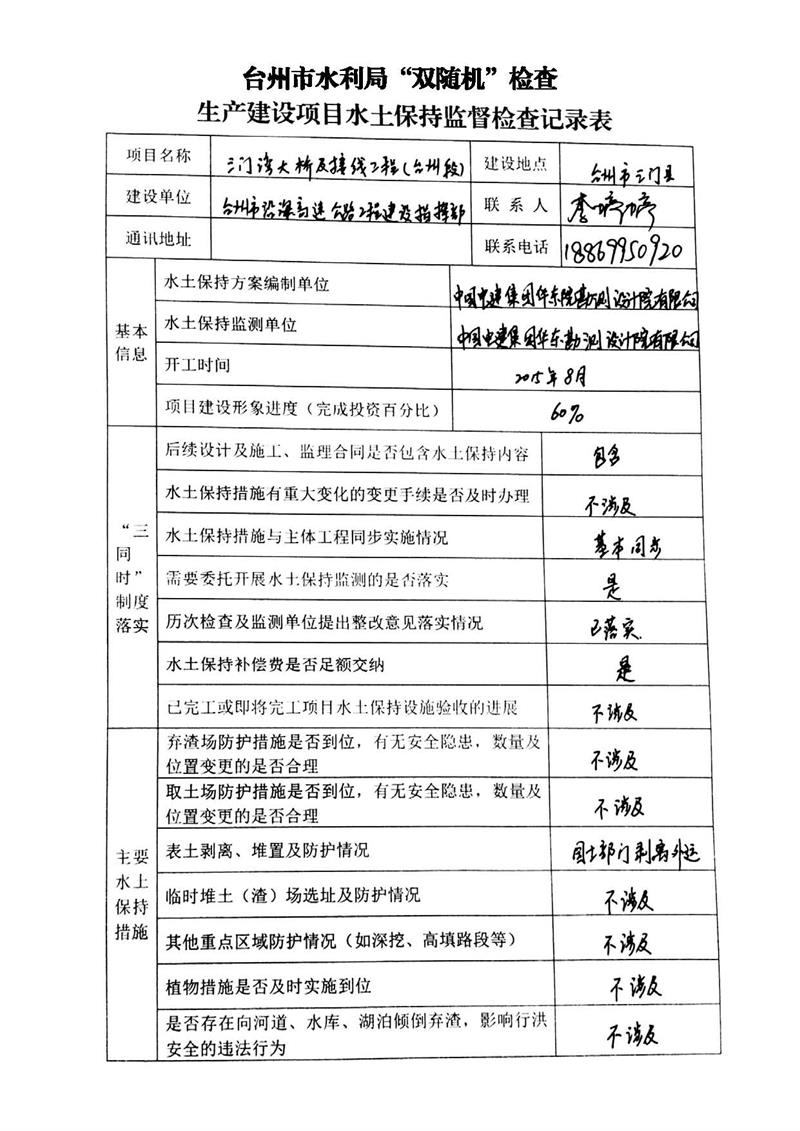 台州市水利局“双随机”检查
生产建设项目水土保持监督检查记录表
项目名称 三门湾大桥及接线工程(台州段) 建设地点 台州市三门县
建设单位 台州市沿海高速公路工程建设指挥部 联系人 李婷婷
通讯地址 联系电话 18869950920
基本
信息
水土保持方案编制单位 中国电建集团华东院勘测设计院有限公司
水土保持监测单位 中国电建集团华东勘测设计院有限公司
开工时间 2015年8月
项目建设形象进度（完成投资百分比） 60%
“三
同
时”
制度
落实
后续设计及施工、监理合同是否包含水土保持内容 包含
水土保持措施有重大变化的变更手续是否及时办理 不涉及
水土保持措施与主体工程同步实施情况 基本同步
需要委托开展水土保持监测的是否落实 是
历次检查及监测单位提出整改意见落实情况 已落实
水土保持补偿费是否足额交纳 是
已完工或即将完工项目水土保持设施验收的进展 不涉及
主要
水土
保持
措施
弃渣场防护措施是否到位，有无安全隐患，数量及
位置变更的是否合理 不涉及
取土场防护措施是否到位，有无安全隐患，数量及
位置变更的是否合理 不涉及
表土剥离、堆置及防护情况 国土部门剥离外运
临时堆土（渣）场选址及防护情况 不涉及
其他重点区域防护情况（如深挖、高填路段等） 不涉及
植物措施是否及时实施到位 不涉及
是否存在向河道、水库、湖泊倾倒弃渣，影响行洪
安全的违法行为 不涉及